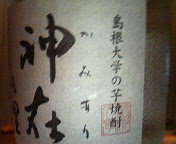 島根大学の芋焼酎
かみあり
神在